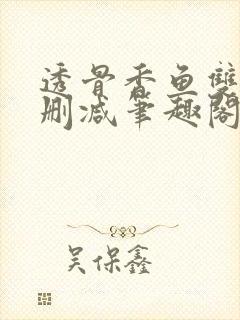 透骨香鱼雙
删减笔趣阁
吴保鑫